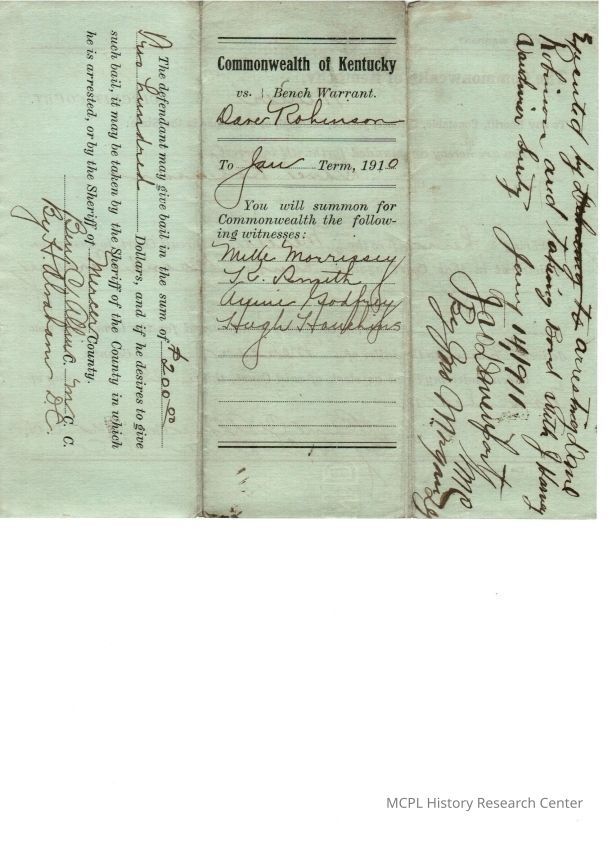 The defendant may give bail in the sum of $200.00
Two hundred Dollars, and if he desires to give
such bail, it may be taken by the Sheriff of the County in which
he is arrested, or by the Sheriff of Mercer County.
C. C.
By H. D.C.
Commonwealth of Kentucky
vs. } Bench Warrant.
Dave Robinson
To Jan Term, 1910
You will summon for
Commonwealth the follow-
ing witnesses:
Morrissey
Smith
Annie Godfrey
Hugh Houchins
Executed by arresting Dave
Robinson and taking Bond with J Harvey
Surety Jany 14, 1911
Jas Davenport
By Jno
MCPL History Research Center